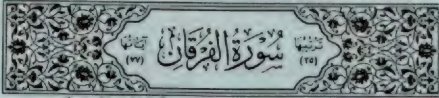 ترتيبها سُورَةُ الفُرقَانِ آياتها
(٢٥) (٧٧)